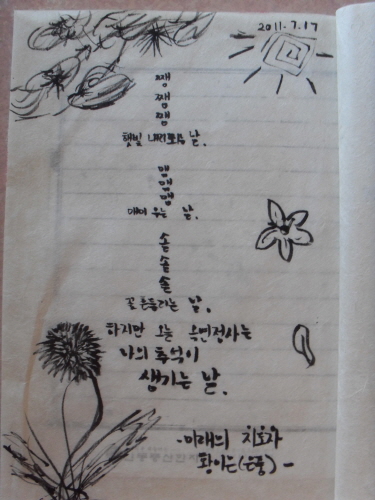 2011.7.17
쨍
쨍
쨍
햇빛 내리쬐는 날.
맴
맴
맴
매미 우는 날.
솔
솔
솔
꽃 흔들리는 날.
하지만 오늘 옥연정사는
나의 추억이
생기는 날.
-미래의 지호자